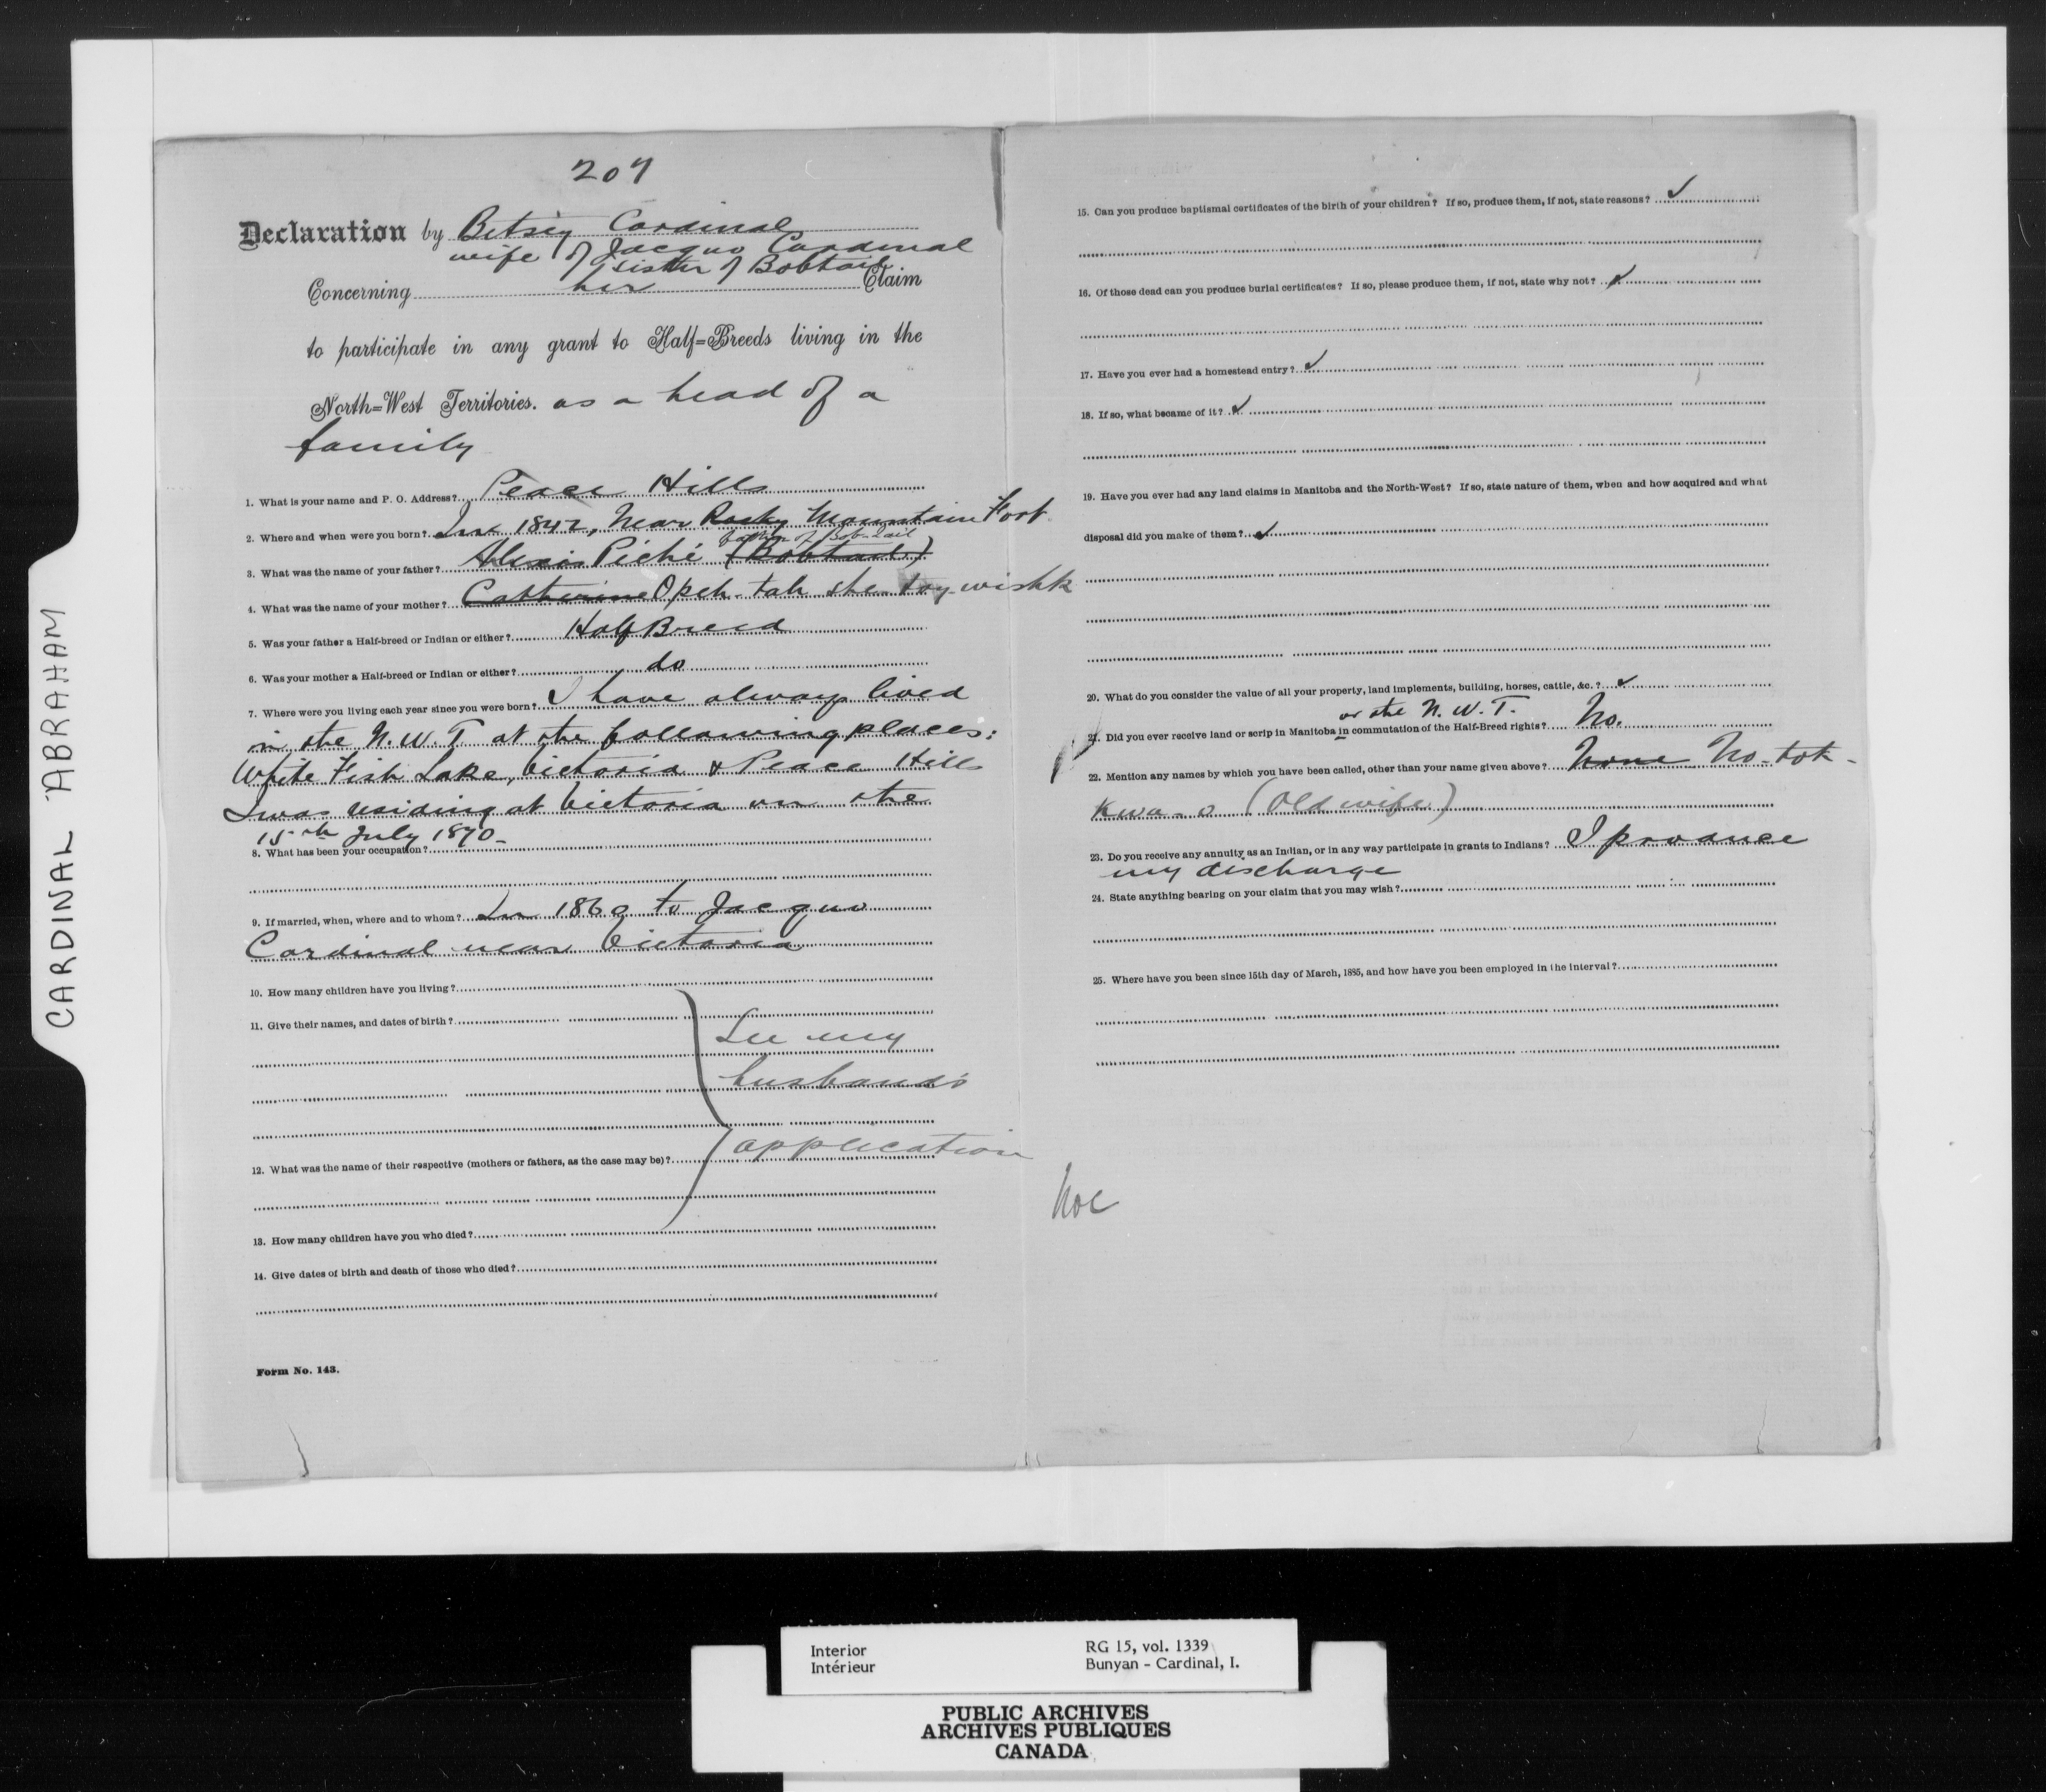 207
Declaration by Betsey Cardinal
wife of Jacques Cardinal
sister of Bobtail
Concerning her Claim
to participate in any grant to Half=Breeds living in the
North=West Territories. as a head of a
family
1. What is your name and P. O. Address? Peace Hills
2. Where and when were you born? In 1842, Near Rocky Mountain Fort
father of Bob-tail
3. What was the name of your father? Alexis Piché (Bobtail)
4. What was the name of your mother? Catherine Opeh-tah-she-toy-wishk
5. Was your father a Half-breed or Indian or either? Half Breed
6. Was your mother a Half-breed or Indian or either? do
7. Where were you living each year since you were born? I have always lived
in the N.W.T at the following places:
White Fish Lake, Victoria & Peace Hills
I was residing at Victoria on the
15th July 1870-
8. What has been your occupation?
9. If married, when, where and to whom? In 1860 to Jacques
Cardinal near Victoria
10. How many children have you living?
11. Give their names, and dates of birth?
See my
husband's
application
12. What was the name of their respective (mothers or fathers, as the case may be)?
13. How many children have you who died?
14. Give dates of birth and death of those who died?
Form No. 143.
15. Can you produce baptismal certificates of the birth of your children? If so, produce them, if not, state reasons? ✓
16. Of those dead can you produce burial certificates? If so, please produce them, if not, state why not? ✓
17. Have you ever had a homestead entry? ✓
18. If so, what became of it? ✓
19. Have you ever had any land claims in Manitoba and the North-West? If so, state nature of them, when and how acquired and what
disposal did you make of them? ✓
20. What do you consider the value of all your property, land implements, building, horses, cattle, &c.? ✓
or the N.W.T.
21. Did you ever receive land or scrip in Manitoba in commutation of the Half-Breed rights? No.
22. Mention any names by which you have been called, other than your name given above? None No-tok-
kwa-o (Old wife)
23. Do you receive any annuity as an Indian, or in any way participate in grants to Indians? I produce
my discharge
24. State anything bearing on your claim that you may wish?
25. Where have you been since 15th day of March, 1885, and how have you been employed in the interval?
CARDINAL ABRAHAM
Interior
Intérieur
RG 15, vol. 1339
Bunyan - Cardinal, I.
PUBLIC ARCHIVES
ARCHIVES PUBLIQUES
CANADA